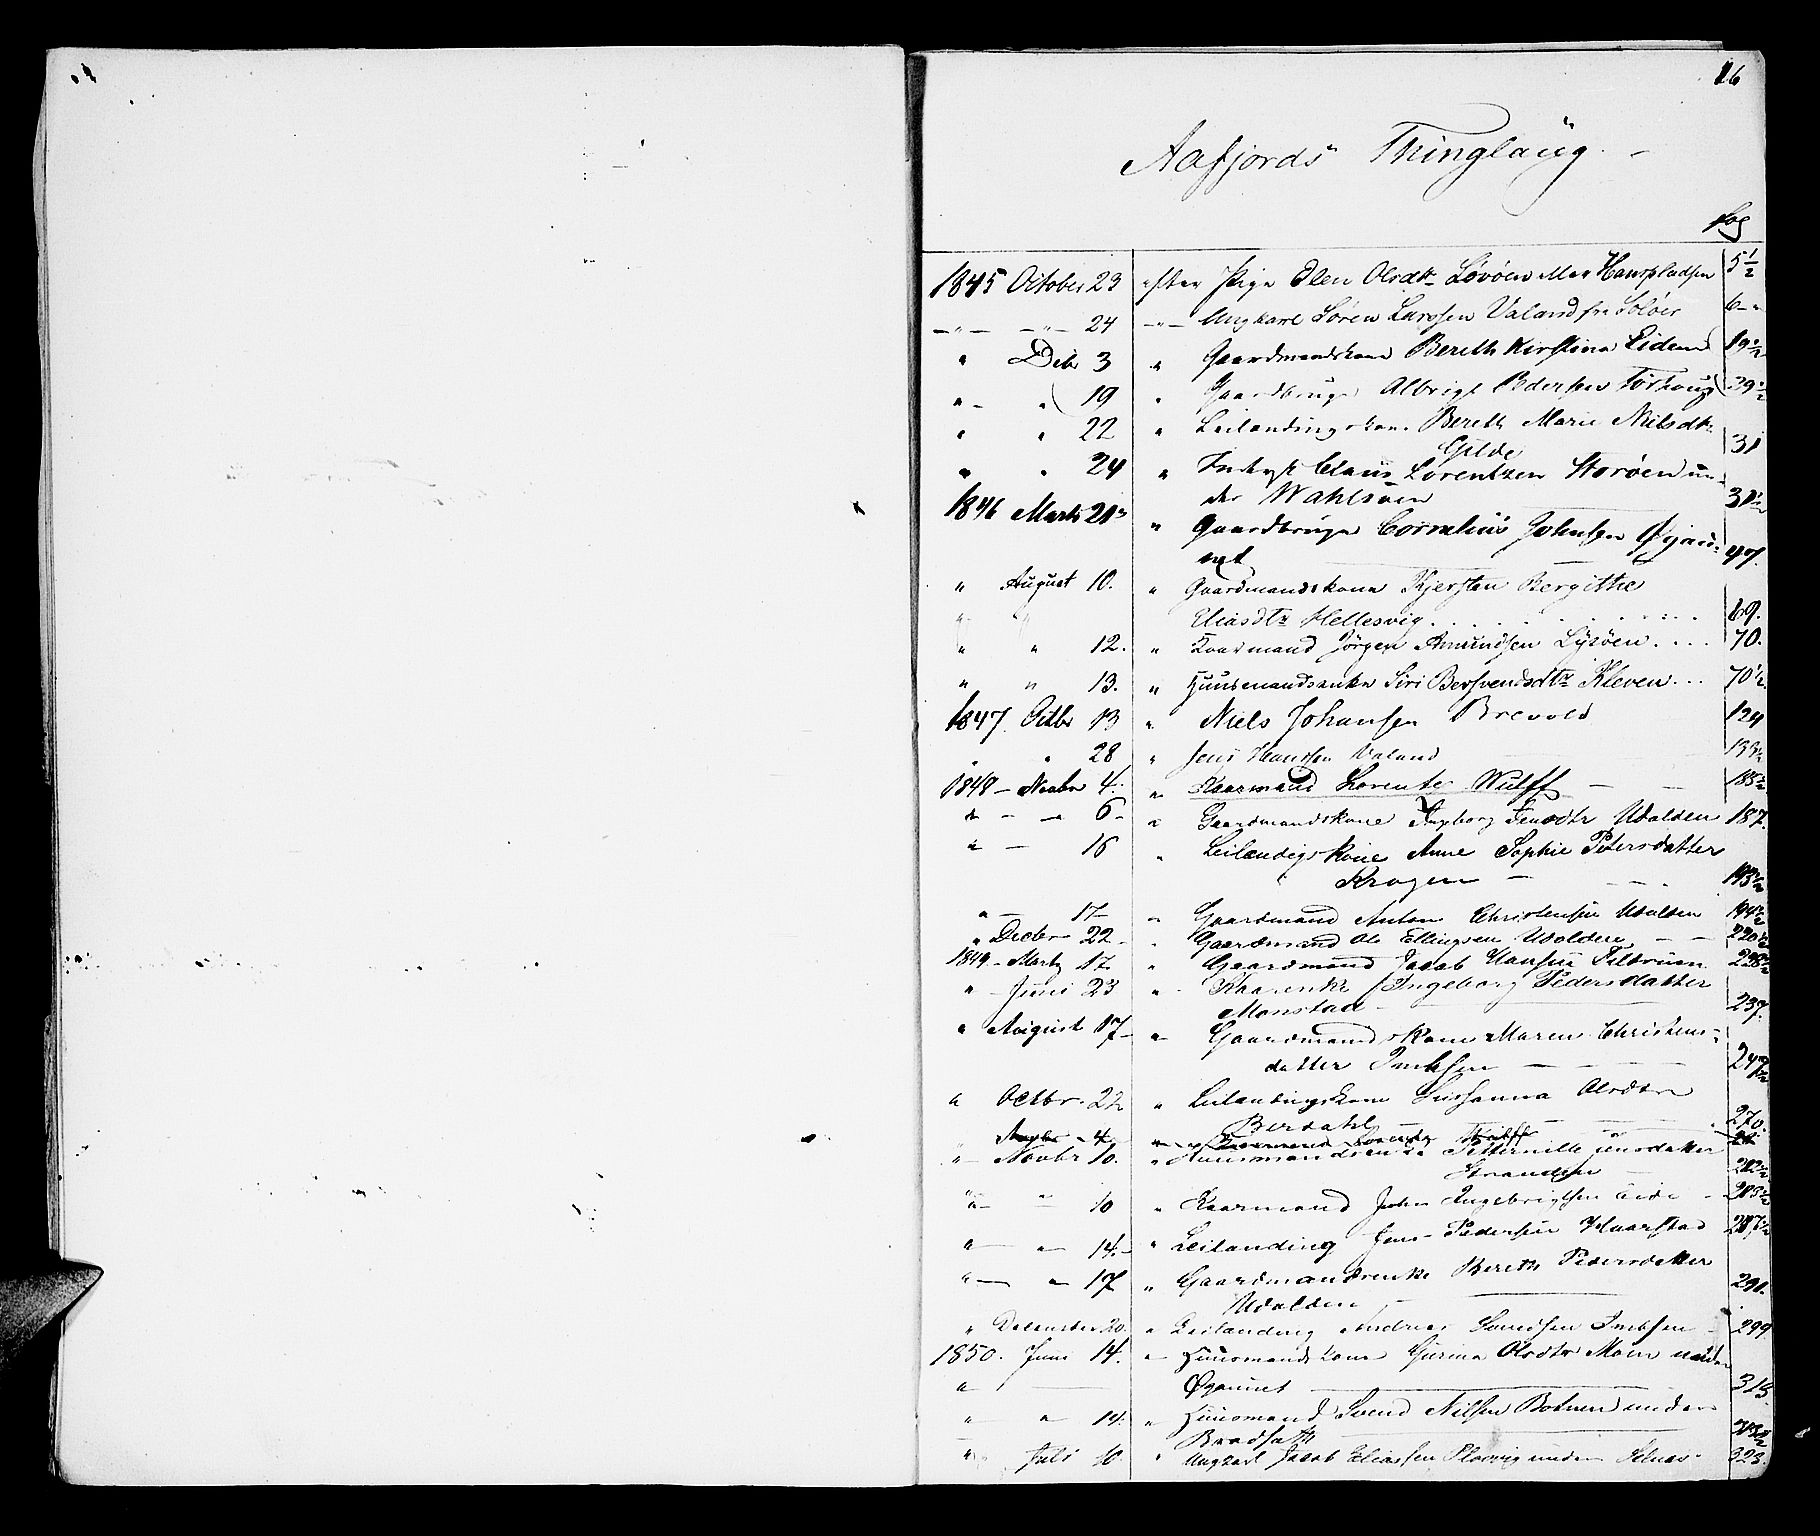 16
Aafjords Thinglaug.
fog
1845 October 23 efter Pige Elen Olsdtr Lövöen Mar Hanspladsen 5 1/2
—"— —"— 24 —"— Ungkarl Sören Larssen Valand fra 6 - "
" Debr 3 " Gaardmandskone Bereth Kirstina Eidem 19 1/2
" - " 19 " Gaardbruger Albrigt Pedersen 29 1/2
" " 22 " Leilændingskone Bereth Marie Nilsdtr
Gilde 31
" " 24 " Inderst Claus Lorentzen Storöen un-
der Wahlsöen 31 1/2
1846 Marts 21 " Gaardbruger Cornelius Johnsen Øyan-
net 47.
" August 10. " Gaardmandskone Kjersten Bergithe
Eliasdtr Hellesvig 69.
" " 12. " Kaarmand Jörgen Amundsen Lysöen 70.
" " 13. " Huusmandsenke Siri Bersvendsdtr Kleven 70 1/2
1847 Octbr 13 " Niels Johansen Brevold 124
" " 28 " Jens Hanssen Valand 133 1/2
1848 - Novbr 4. " Kaarmand Lorents Wulff 185 1/2
" - " 6 - " Gaardmandskone Ingeborg Jensdtr Udalden 187.
" - 16 " Leilændigskone Anne Sophie Petersdatter
Kragen 193 1/2
" - 17 - " Gaardmand Anton Christensen Udalden 194 1/2
" Decbr 22 - " Gaardmand Ole Ellingsen Udalden 220 1/2
1849 - Marts 17. " Gaardmand Jacob Hansen 228 1/2
" - Juni 23 " Kaarenke Ingeborg Pedersdatter
Monstad 237.
" August 17 - " Gaardmandskone Maren Christens-
datter Imbsen 247 1/2
" Octbr. 22 " Leilændingskone Sussanna Olsdtr
Berdahl 270.
" Novbr 4 " Kaarmand Lorents Wulff
" Novbr 10. " Huusmandsenke Petternille Jensdatter
Stranden 282 1/2
" - " 10 " Kaarmand John Ingebrigtsen Eide 283 1/2
" - " 14. - " Leilænding Jens Pedersen Haarstad 287 1/2
" — " 17 " Gaardmandsenke Bereth Pedersdatter
Udalden 290.
" December 20. " Leilænding Andreas Imbsen 299
1850. Juni 14. " Huusmandskone Gurina Olsdtr Moen under
" Øyannet 315.
" " 14. " Huusmand Svend Nilsen Botnen under
" Juli 10. " Ungkarl Jacob Eliassen under Selnes 323.